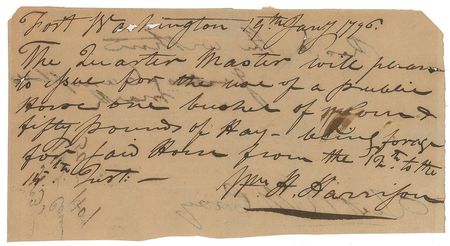 Fort Washington 19th Jany 1796.
The Quarter Master will please
to issue for the use of a public
Horse one bushel of &
fifty pounds of Hay - being forage
for said Horse from the 12th to the
Inst:
Wm. H. Harrison